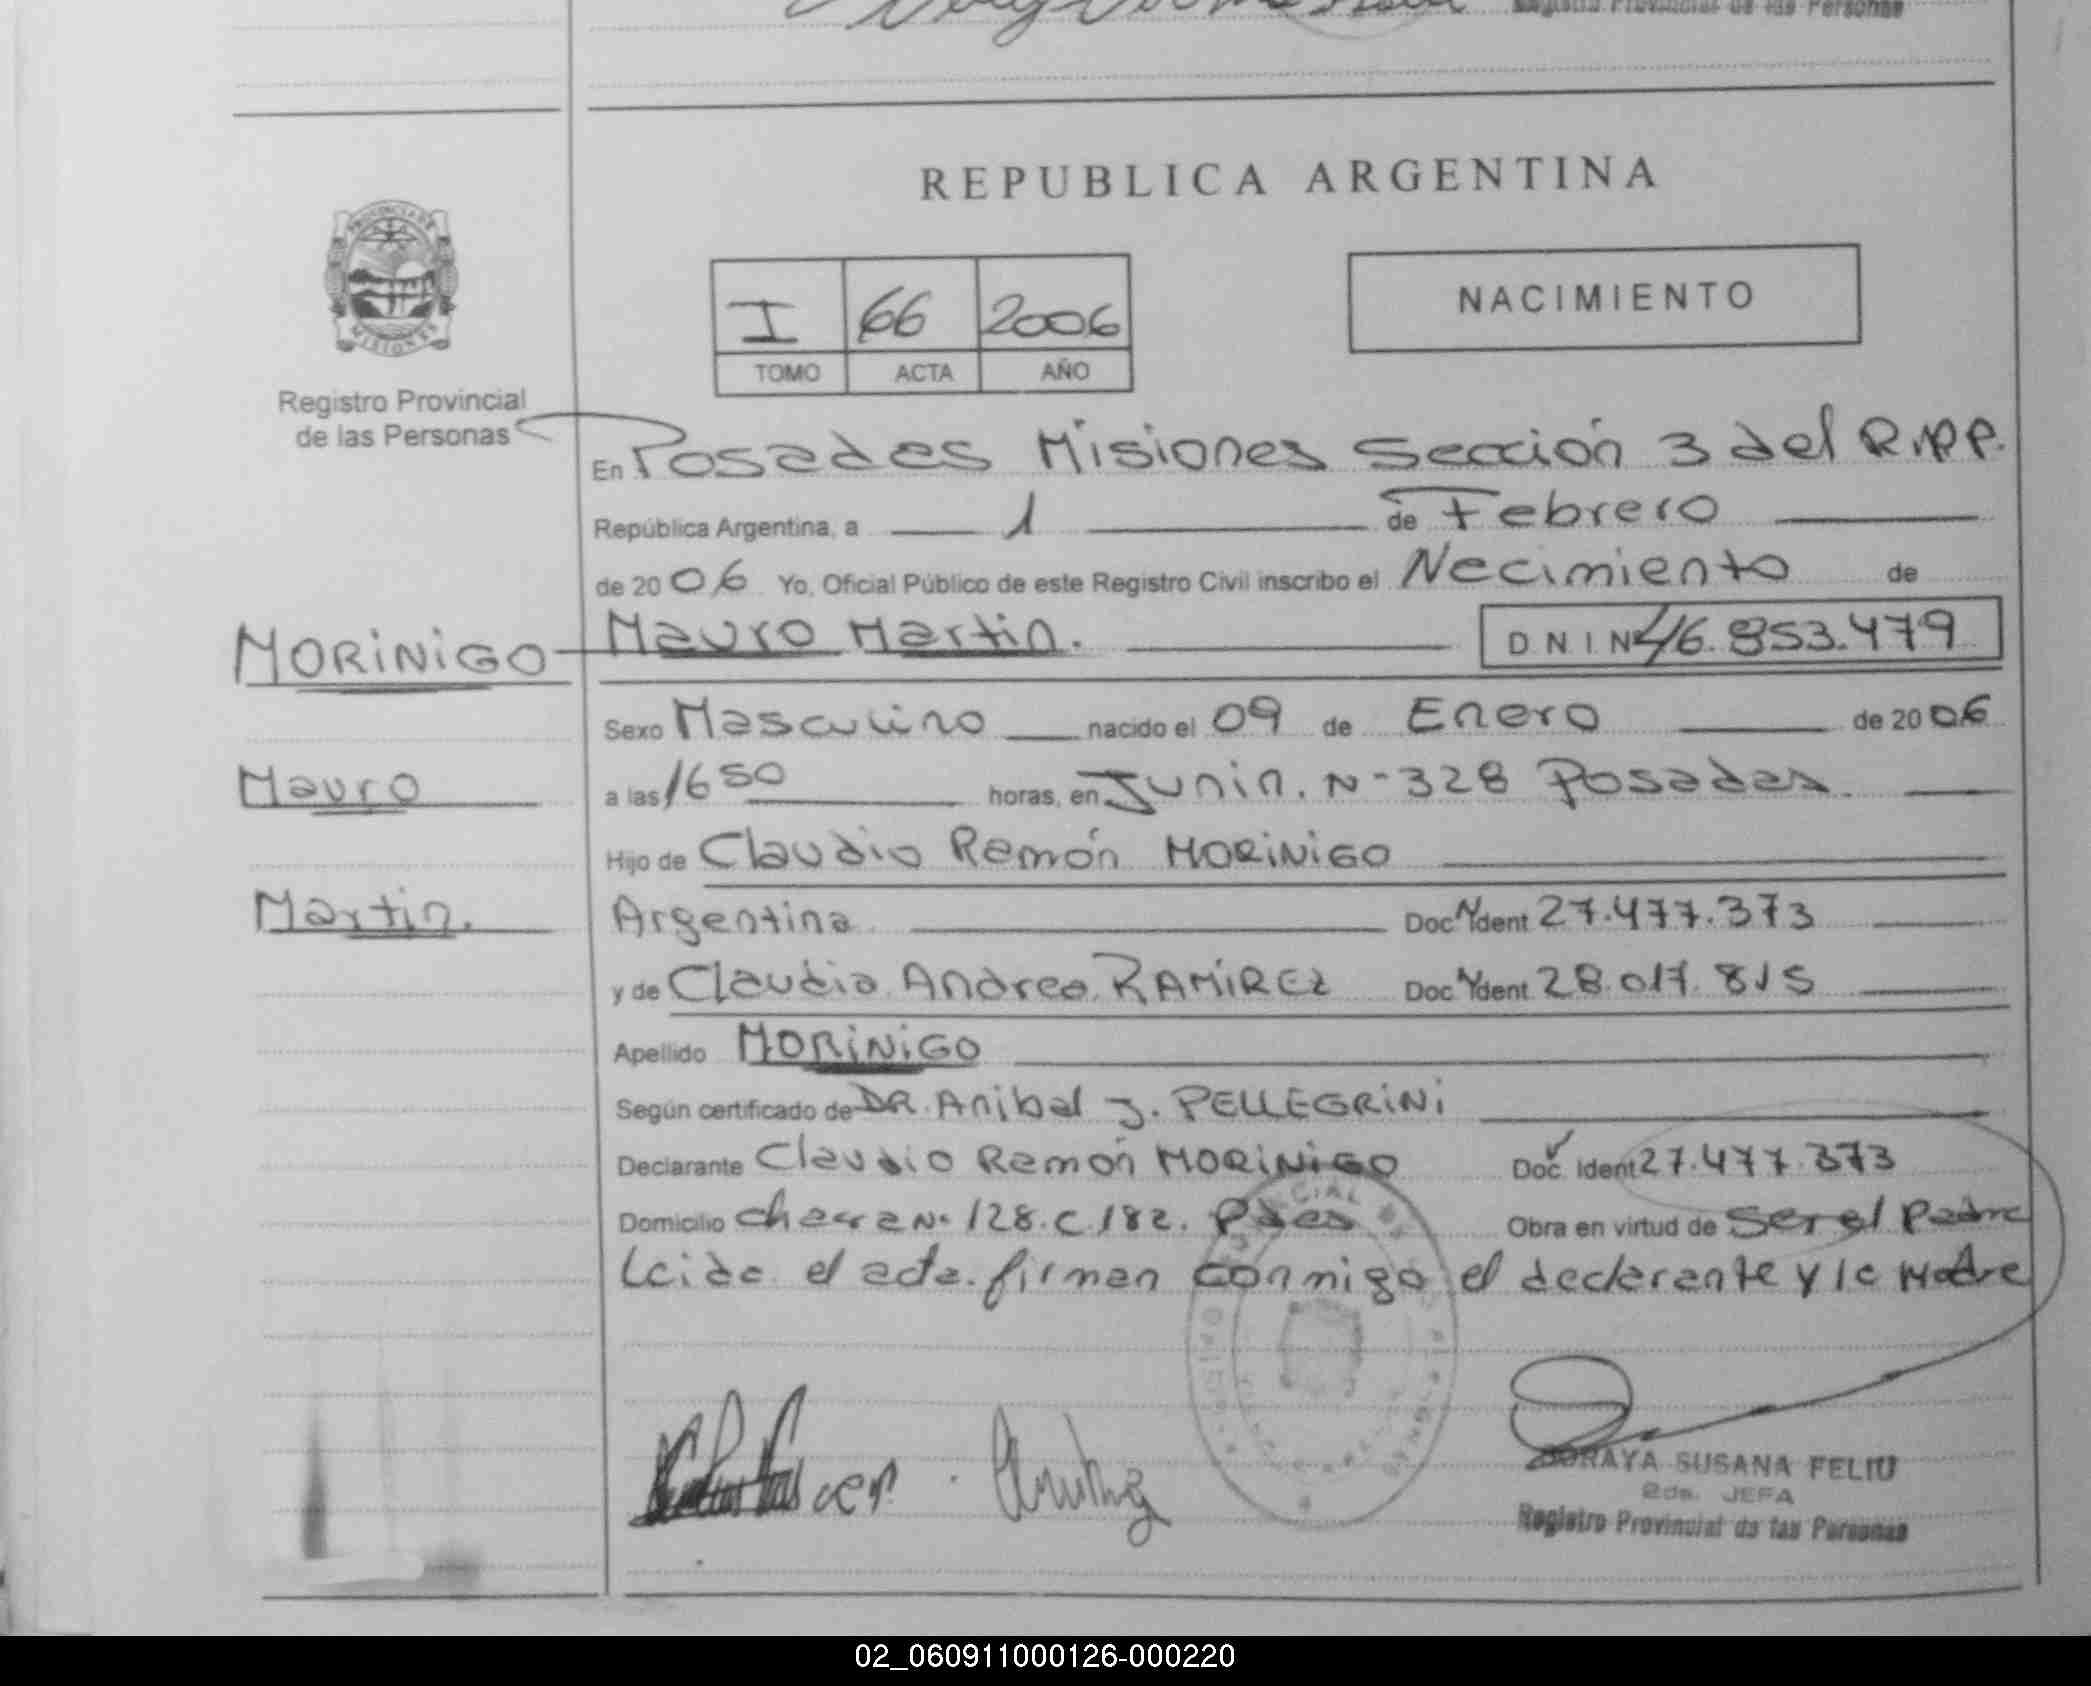 Registro Provincial de las Personas
REPUBLICA ARGENTINA
PROVINCIA DE
MISIONES
I 66 2006
TOMO ACTA AÑO
NACIMIENTO
Registro Provincial
de las Personas
En Posadas Misiones Sección 3 del R.P.P.
República Argentina, a 1 de Febrero
de 2006 Yo, Oficial Público de este Registro Civil inscribo el Nacimiento de
MORINIGO Mauro Martin. DNI Nº 46.853.479
Sexo Masculino nacido el 09 de Enero de 2006
Mauro
a las 16 50 horas, en Junin. N- 328 Posadas.
Hijo de Claudio Ramón MORINIGO
Martin.
Argentina Doc. N Ident 27.477.373
y de Claudia Andrea RAMIREZ Doc. N Ident 28.017.815
Apellido MORINIGO
Según certificado de DR. Anibal J. PELLEGRINI
Declarante Claudio Ramón MORINIGO Doc. Ident 27.477.373
Domicilio chacra N· 128. C. 182. Pdas Obra en virtud de ser el Padre
Leida el acta. firman conmigo el declarante y la Madre
SORAYA SUSANA FELIU
2da. JEFA
Registro Provincial de las Personas
02_060911000126-000220